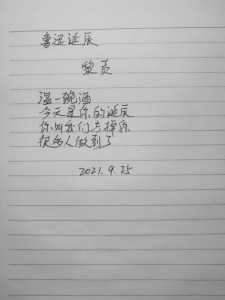 鲁迅诞辰
黎贡
温一碗酒
今天是你的诞辰
你叫我们去掉你
很多人做到了
2021.9.25